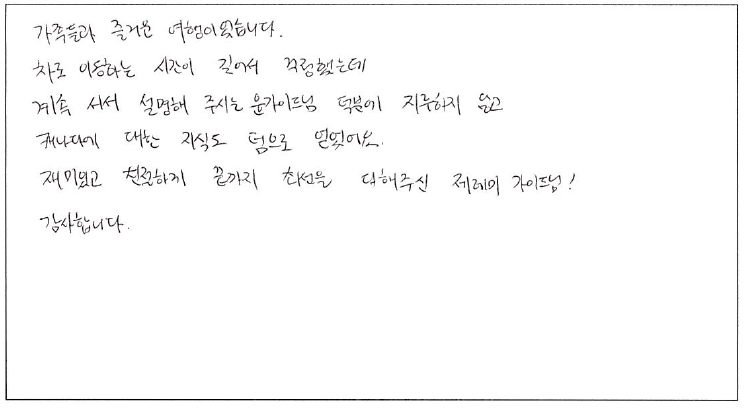 가족들과 즐거운 여행이었습니다.
차로 이동하는 시간이 길어서 걱정했는데
계속 서서 설명해 주시는 윤가이드님 덕분에 지루하지 않고
캐나다에 대한 지식도 덤으로 얻었어요.
재미있고 친절하게 끝까지 최선을 다해주신 제레미 가이드님!
감사합니다.